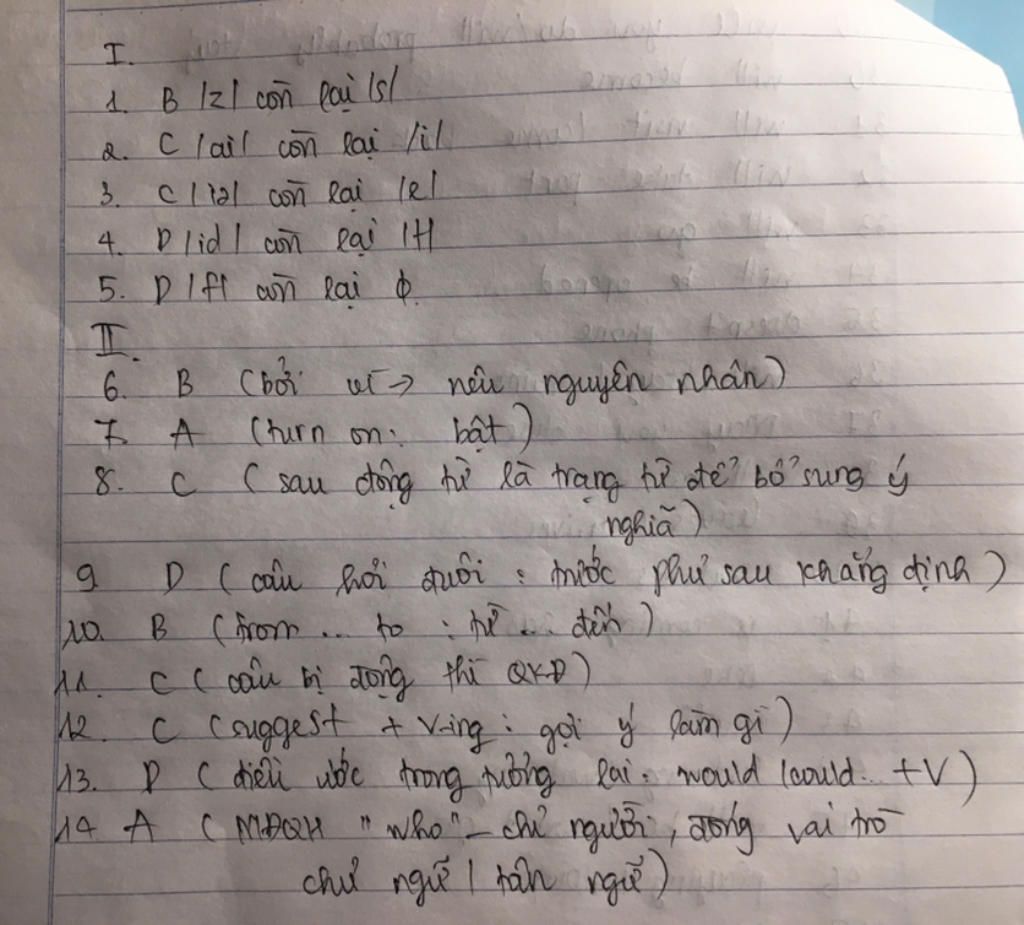 I.
1. B /z/ còn lại /s/
2. C /ai/ còn lại /i/
3. C /iə/ còn lại /e/
4. D /id/ còn lại /t/
5. D /f/ còn lại ϕ.
II.
6. B (bởi vì → nêu nguyên nhân)
7. A (turn on: bật)
8. C (sau động từ là trạng từ để bổ sung ý
nghĩa)
9 D (câu hỏi đuôi: trước phủ sau khẳng định)
10. B (from ... to : từ ... đến)
11. C (câu bị động thì QKĐ)
12. C (suggest + V-ing: gợi ý làm gì)
13. D (điều ước trong tương lai: would /could.. +V)
14 A (MĐQH "who" - chỉ người, đóng vai trò
chủ ngữ / tân ngữ)